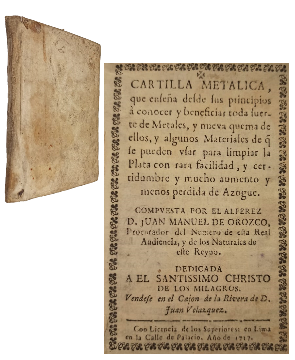 CARTILLA METALICA,
que enseña desde sus principios
à conocer y beneficiar toda suer-
te de Metales, y nueva quema de
ellos, y algunos Materiales de q̃
se pueden vsar para limpiar la
Plata con rara facilidad, y cer-
tidumbre y mucho aumento y
menos perdida de Azogue.
COMPVESTA POR EL ALFEREZ
D. JUAN MANUEL DE OROZCO,
Procurador del Numero de esta Real
Audiencia, y de los Naturales de
este Reyno.
DEDICADA
A EL SANTISSIMO CHRISTO
DE LOS MILAGROS.
Vendese en el Caxon de la Rivera de D.
Juan Velazquez.
Con Licencia de los Superiores: en Lima
en la Calle de Palacio. Año de